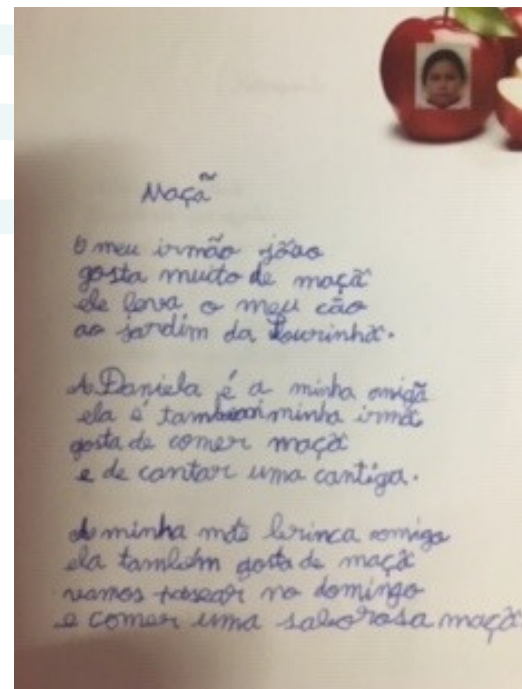 Maçã
O meu irmão joão
gosta muito de maçã
ele leva o meu cão
ao jardim da Lourinhã.
A Daniela é a minha amigã
ela é também minha irmã
gosta de comer maçã
e de cantar uma cantiga.
A minha mãe brinca comigo
ela também gosta de maçã
vamos pasear no domingo
e comer uma saborosa maçã